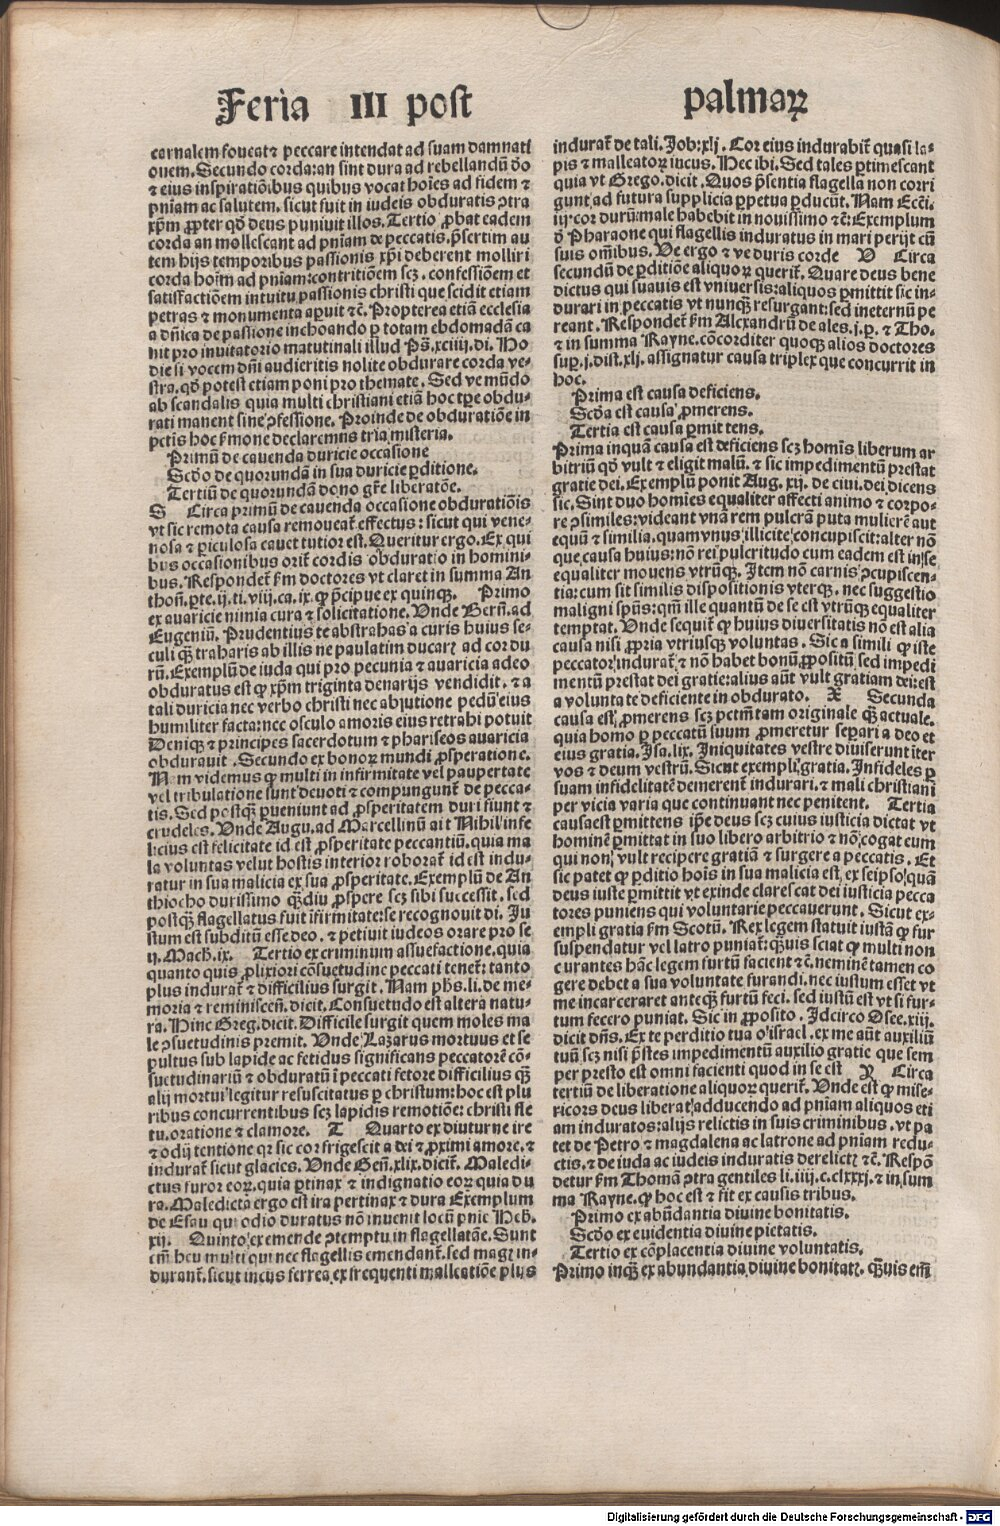 Feria III post palmaꝝ
carnalem foueat ⁊ peccare intendat ad suam damnati
onem. Secundo corda: an sint dura ad rebellandū deo
⁊ eius inspiratiōibus quibus vocat hoīes ad fidem ⁊
pn̄iam ac salutem. sicut fuit in iudeis obduratis ꝯtra
xp̄m ꝓpter qd̄ deus puniuit illos. Tertio ꝓbat eadem
corda an mollescant ad pn̄iam de peccatis. p̄sertim au
tem hijs temporibus passionis xp̄i deberent molliri
corda hoīm ad pn̄iam: contritiōem scꝫ. confessiōem et
satisfactiōem intuitu passionis christi que scidit etiam
petras ⁊ monumenta aꝑuit ⁊c̄. Propterea etiā ecclesia
a dn̄ica de passione inchoando ꝑ totam ebdomadā ca
nit pro inuitatorio matutinali illud Ps̄. xciiij. di. Ho
die si vocem dn̄i audieritis nolite obdurare corda ve-
stra. qd̄ potest etiam poni pro themate. Sed ve mūdo
ab scandalis quia multi christiani etiā hoc tꝑe obdu-
rati manent sine ꝯfessione. Proinde de obduratiōe in
pctis hoc ẜmone declaremus tria misteria.
Primū de cauenda duricie occasione
Scd̄o de quorundā in sua duricie ꝑditione.
Tertiū de quorundā dono gr̄e liberatōe.
S Circa primū de cauenda occasione obduratiōis
vt sic remota causa remoueat̄ effectus: sicut qui vene-
nosa ⁊ ꝑiculosa cauet tutior est. Queritur ergo. Ex qui
bus occasionibus orit̄ cordis obduratio in homini-
bus. Respondet̄ ẜm doctores vt claret in summa An
thoñ. ꝑte. ij. ti. viij. ca. ix. ꝙ p̄cipue ex quinqꝫ. Primo
ex auaricie nimia cura ⁊ solicitatione. Vnde Berñ. ad
Eugeniū. Prudentius te abstrahas a curis huius se-
culi qꝫ̄ traharis ab illis ne paulatim ducaꝝ ad cor du
rū. Exemplū de iuda qui pro pecunia ⁊ auaricia adeo
obduratus est ꝙ xp̄m triginta denarijs vendidit. ⁊ a
tali duricia nec verbo christi nec ablutione pedū eius
humiliter facta: nec osculo amoris eius retrahi potuit
Deniqꝫ ⁊ principes sacerdotum ⁊ phariseos auaricia
obdurauit. Secundo ex bonoꝝ mundi ꝓsperatione.
Nam videmus ꝙ multi in infirmitate vel paupertate
vel tribulatione sunt deuoti ⁊ compungunt̄ de pecca-
tis. Sed postqꝫ̄ ꝑueniunt ad ꝓsperitatem duri fiunt ⁊
crudeles. Vnde Augu. ad Marcellinū ait Nihil infe
licius est felicitate id est ꝓsperitate peccantiū. quia ma
la voluntas velut hostis interior roborat̄ id est indu-
ratur in sua malicia ex sua ꝓsperitate. Exemplū de An
thiocho durissimo qꝫ̄diu ꝓspere scꝫ sibi successit. sed
postqꝫ̄ flagellatus fuit īfirmitate: se recognouit di. Ju
stum est subditū esse deo. ⁊ petiuit iudeos orare pro se
ij. Mach. ix. Tertio ex criminum assuefactione. quia
quanto quis ꝓlixiori cōsuetudine peccati tenet̄: tanto
plus indurat̄ ⁊ difficilius surgit. Nam ph̄s. li. de me-
moria ⁊ reminisceñ. dicit. Consuetudo est altera natu-
ra. Hinc Greg. dicit. Difficile surgit quem moles ma
le ꝯsuetudinis premit. Vnde Lazarus mortuus et se
pultus sub lapide ac fetidus significans peccatorē cō-
suetudinariū ⁊ obduratū ī peccati fetore difficilius qꝫ̄
alij mortui legitur resuscitatus ꝑ christum: hoc est plu
ribus concurrentibus scꝫ lapidis remotiōe: christi fle
tu. oratione ⁊ clamore. T Quarto ex diuturne ire
⁊ odij tentione qꝛ sic cor frigescit a dei ⁊ ꝓximi amore. ⁊
indurat̄ sicut glacies. Vnde Geñ. xlix. dicit̄. Maledi-
ctus furor eoꝝ. quia ꝑtinax ⁊ indignatio eoꝝ quia du
ra. Maledicta ergo est ira pertinax ⁊ dura Exemplum
de Esau qui odio duratus nō inuenit locū pn̄ie Heb̄.
xij. Quinto ex emende ꝯtemptu in flagellatōe. Sunt
em̄ heu multi qui nec flagellis emendant̄. sed magꝭ in-
durant̄. sicut incus ferrea ex frequenti malleatiōe plus
indurat̄ de tali. Job: xlj. Cor eius indurabit̄ quasi la-
pis ⁊ malleatoꝝ incus. Hec ibi. Sed tales ꝑtimescant
quia vt Grego. dicit. Quos p̄sentia flagella non corri
gunt. ad futura supplicia ꝑpetua ꝑducūt. Nam Ecci.
iij. cor durū male habebit in nouissimo ⁊c̄. Exemplum
de Pharaone qui flagellis induratus in mari perijt cū
suis om̄ibus. Ve ergo ⁊ ve duris corde V Circa
secundū de ꝑditiōe aliquoꝝ querit̄. Quare deus bene
dictus qui suauis est vniuersis: aliquos ꝑmittit sic in-
durari in peccatis vt nunqꝫ̄ resurgant: sed ineternū pe
reant. Respondet̄ ẜm Alexandrū de ales. j. p. ⁊ Tho.
⁊ in summa Rayne. cōcorditer quoqꝫ alios doctores
suꝑ. j. dist. xlj. assignatur causa triplex que concurrit in
hoc.
Prima est causa deficiens.
Scd̄a est causa ꝓmerens.
Tertia est causa ꝑmit tens.
Prima inquā causa est deficiens scꝫ homīs liberum ar
bitriū qd̄ vult ⁊ eligit malū. ⁊ sic impedimentū prestat
gratie dei. Exemplū ponit Aug. xij. de ciui. dei. dicens
sic. Sint duo homīes equaliter affecti animo ⁊ corpo-
re ꝯsimiles: videant vnā rem pulcrā puta mulierē aut
equū ⁊ similia. quam vnus illicite concupiscit: alter nō
que causa huius: nō rei pulcritudo cum eadem est in se
equaliter mouens vtrūqꝫ. Item nō carnis ꝯcupiscen-
tia: cum sit similis dispositionis vterqꝫ. nec suggestio
maligni spūs: qm̄ ille quantū de se est vtrūqꝫ equaliter
temptat. Vnde sequit̄ ꝙ huius diuersitatis nō est alia
causa nisi ꝓpria vtriusqꝫ voluntas. Sic a simili ꝙ iste
peccator indurat̄ ⁊ nō habet bonū ꝓpositū. sed impedi
mentū prestat dei gratie: alius aūt vult gratiam dei: est
a volunta te deficiente in obdurato. X Secunda
causa est ꝓmerens scꝫ pctm̄ tam originale qꝫ̄ actuale.
quia homo ꝑ peccatū suum ꝓmeretur seꝑari a deo et
eius gratia. Isa. lix. Iniquitates vestre diuiserunt iter
vos ⁊ deum vestrū. Sicut exempli gratia. Infideles ꝑ
suam infidelitatē demerent̄ indurari. ⁊ mali christiani
per vicia varia que continuant nec penitent. Tertia
causa est ꝑmittens ip̄e deus scꝫ cuius iusticia dictat vt
hominē ꝑmittat in suo libero arbitrio ⁊ nō cogat eum
qui non vult recipere gratiā ⁊ surgere a peccatis. Et
sic patet ꝙ ꝑditio hoīs in sua malicia est ex seipso quā
deus iuste ꝑmittit vt exinde clarescat dei iusticia pecca
tores puniens qui voluntarie peccauerunt. Sicut ex-
empli gratia ẜm Scotū. Rex legem statuit iustā ꝙ fur
suspendatur vel latro puniat̄: qꝫ̄uis sciat ꝙ multi non
curantes hāc legem furtū facient ⁊c̄. neminē tamen co
gere debet a sua voluntate furandi. nec iustum esset vt
me incarceraret anteqꝫ̄ furtū feci. sed iustū est vt si fur-
tum fecero puniat. Sic in ꝓposito. Idcirco Osee. xiij.
dicit dn̄s. Ex te perditio tua o israel. ex me aūt auxiliū
tuū scꝫ nisi p̄stes impedimentū auxilio gratie que sem
per presto est omni facienti quod in se est Y Circa
tertiū de liberatione aliquoꝝ querit̄. Vnde est ꝙ mise-
ricors deus liberat adducendo ad pn̄iam aliquos eti
am induratos: alijs relictis in suis criminibus. vt pa
tet de Petro ⁊ magdalena ac latrone ad pn̄iam redu-
ctis. ⁊ de iuda ac iudeis induratis derelictꝭ ⁊c̄. Respō
detur ẜm Thomā ꝯtra gentiles li. iiij. c. clxxxj. ⁊ in sum
ma Rayne. ꝙ hoc est ⁊ fit ex causis tribus.
Primo ex abūdantia diuine bonitatis.
Scd̄o ex euidentia diuine pietatis.
Tertio ex cōplacentia diuine voluntatis.
Primo inqꝫ̄ ex abundantia diuine bonitatꝭ. qꝫ̄uis em̄
Digitalisierung gefördert durch die Deutsche Forschungsgemeinschaft - DFG